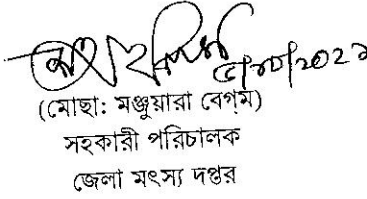 (মোছা: মঞ্জুয়ারা বেগম)
সহকারী পরিচালক
জেলা মৎস্য দপ্তর